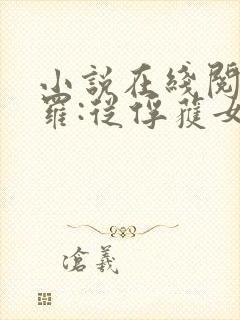 小説在綫閱
羅:從俘獲女
滄義